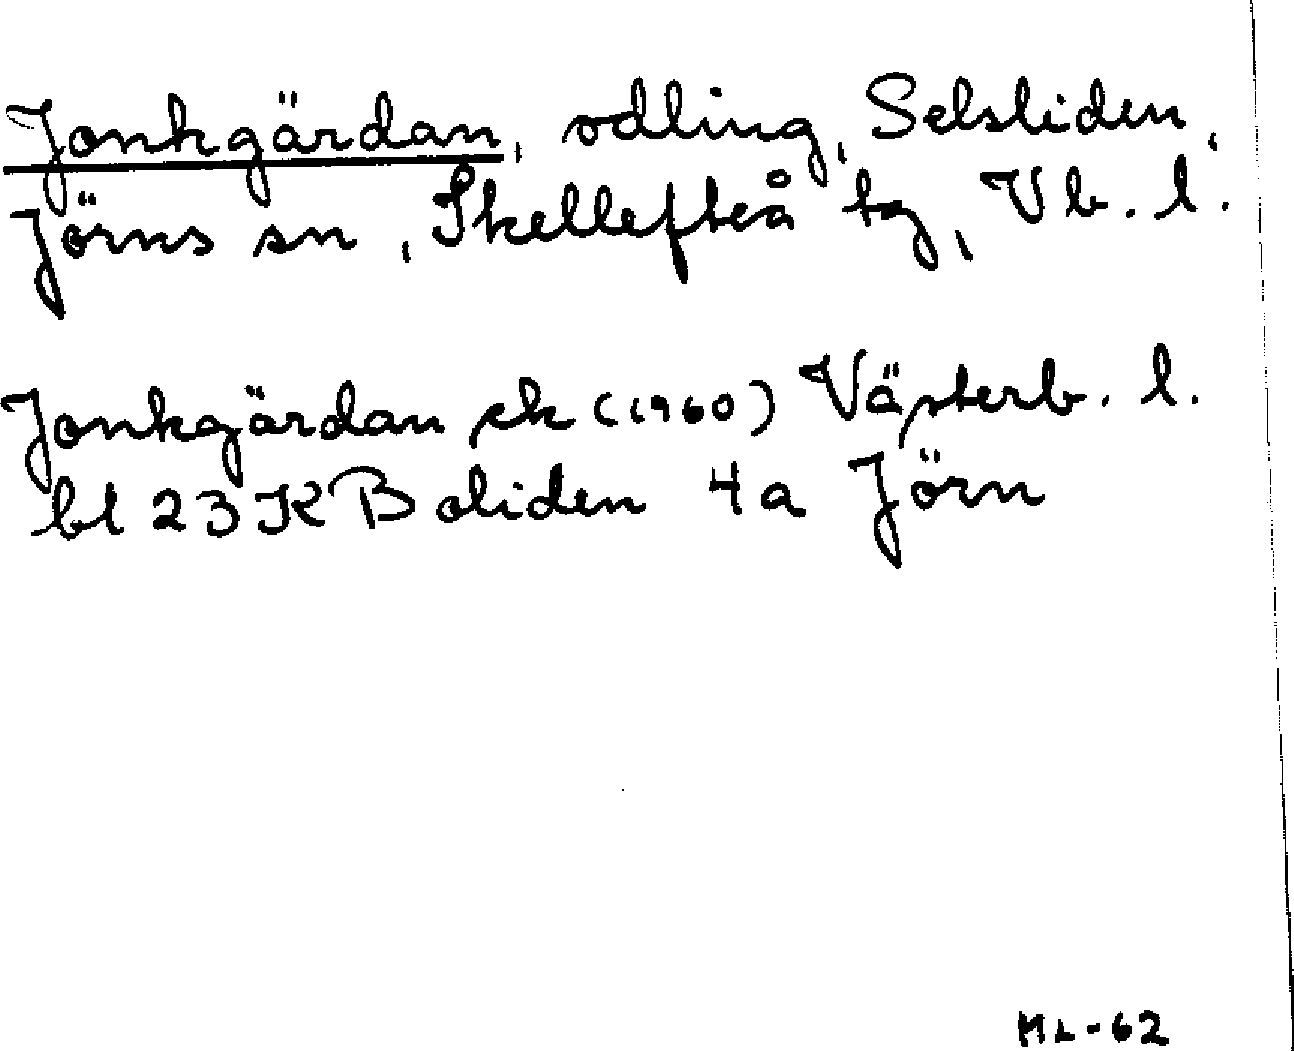 Jonkgärdan, odling, Selsliden,
Jörns sn, Skellefteå tg, Vb. l.
Jonkgärdan ek (1960) Västerb. l.
bl 23 K Boliden 4a Jörn
ML-62